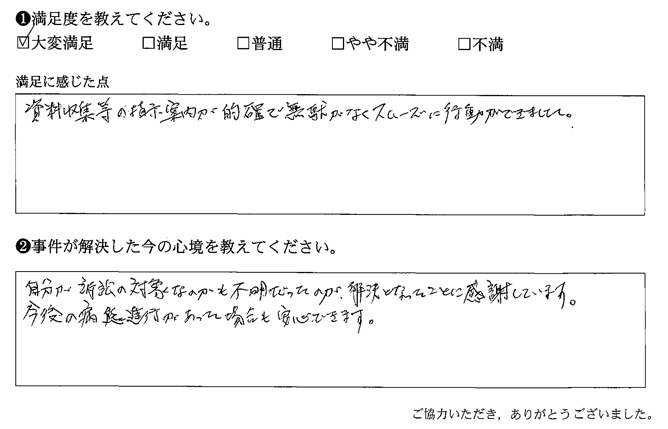 ❶満足度を教えてください。
☑大変満足 □満足 □普通 □やや不満 □不満
満足に感じた点
資料収集等の指示案内が的確で無駄がなくスムーズに行動ができました。
❷事件が解決した今の心境を教えてください。
自分が訴訟の対象なのかも不明だったのが、解決となったことに感謝しています。
今後の病態進行があった場合も安心できます。
ご協力いただき，ありがとうございました。